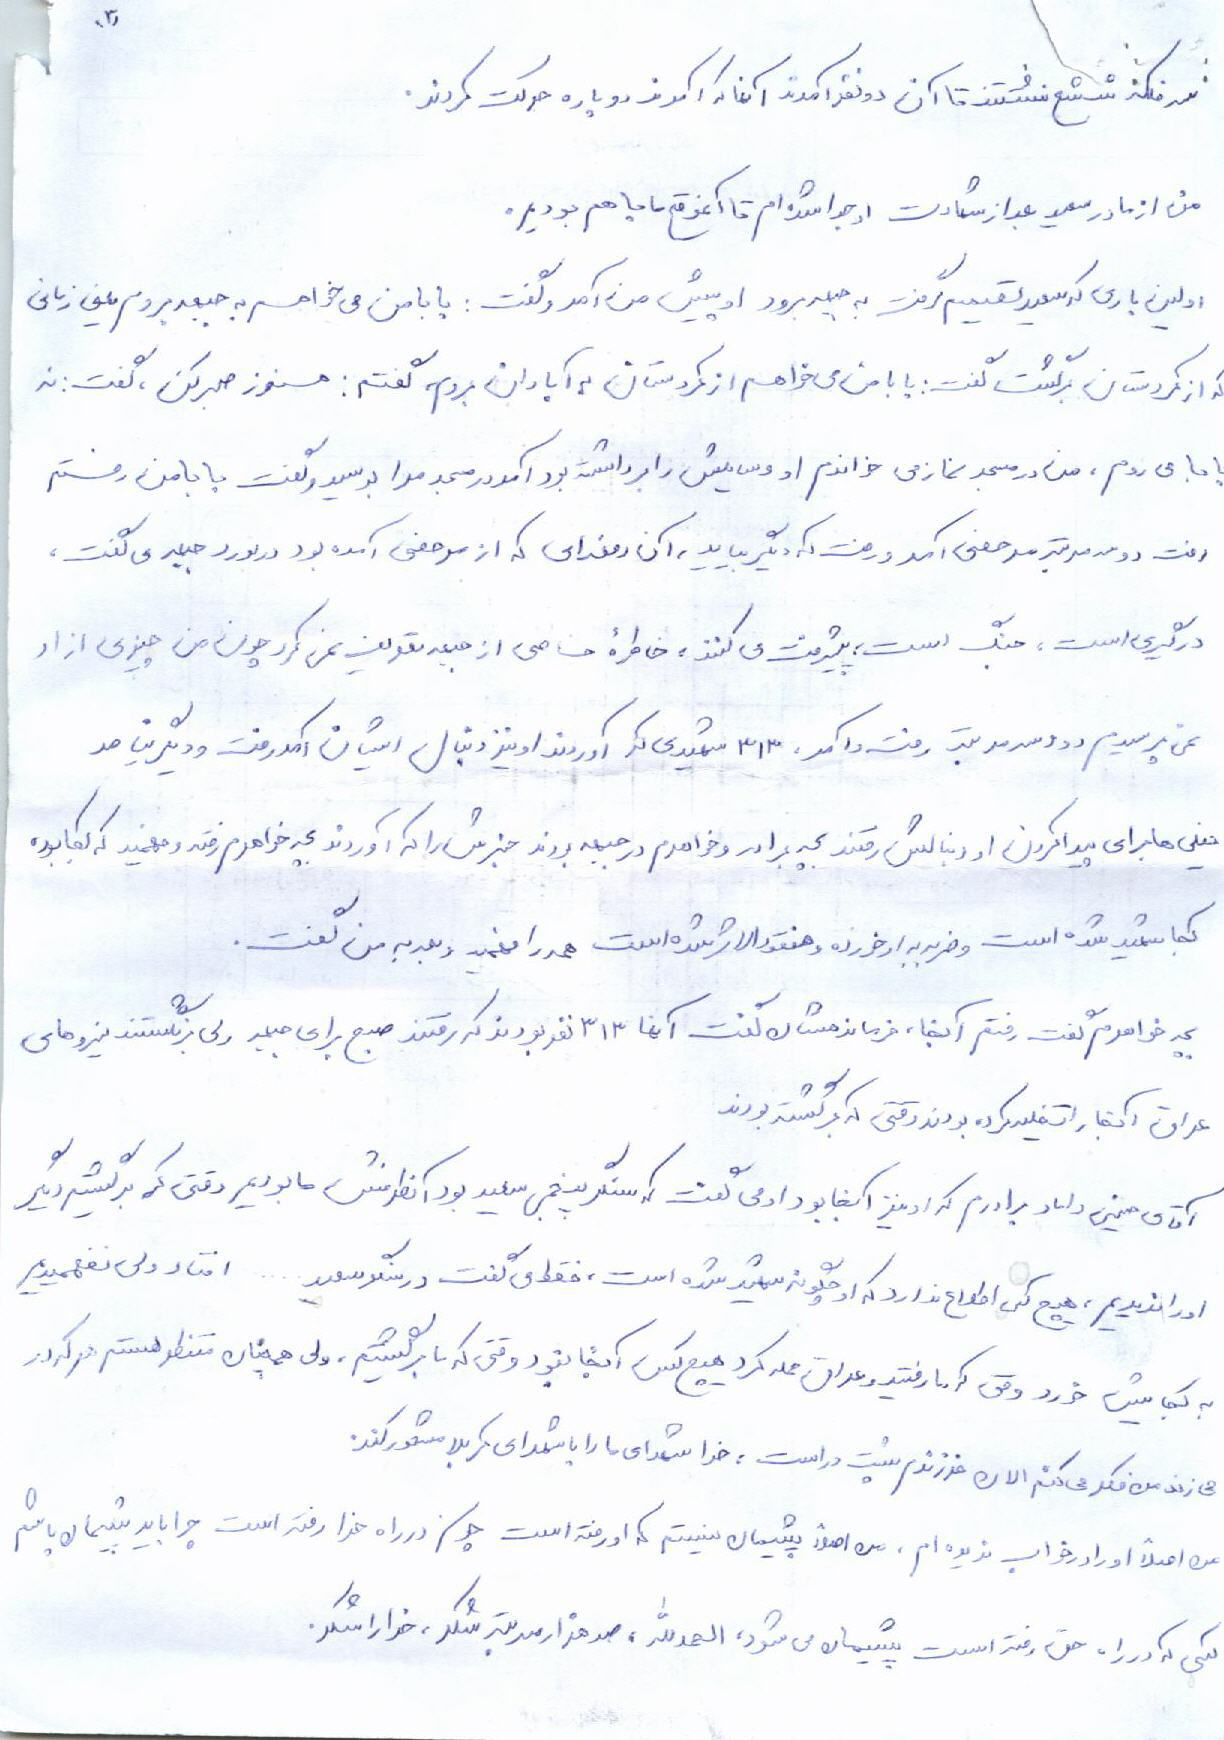 ۳
نشستند تا آن دو نفر آمدند آنها که آمدند دوباره حرکت کردند.
من از مادر سعید بعد از شهادت او جدا شده ام تا آنموقع ما با هم بودیم.
اولین باری که سعید تصمیم گرفت به جبهه برود او پیش من آمد و گفت: بابا من می خواهم به جبهه بروم یعنی زمانی
که از کردستان برگشت گفت: بابا من می خواهم از کردستان به آبادان بروم، گفتم: هنوز صبر کن، گفت: نه
بابا می روم، من در مسجد نماز می خواندم او وسایلش را برداشته بود آمد در مسجد مرا بوسید و گفت بابا من رفتم
رفت دو سه مرتبه مرخصی آمد و رفت که دیگر نیامد، آن دفعه ای که از مرخصی آمده بود در مورد جبهه می گفت،
درگیری است، جنگ است، پیشرفت می کنند، خاطرهٔ خاصی از جبهه تعریف نمی کرد چون من چیزی از او
نمی پرسیدم دو سه مرتبه رفت و آمد، ۳۱۳ شهیدی که آوردند او نیز دنبال ایشان آمد رفت و دیگر نیامد
خیلی ها برای پیدا کردن او دنبالش رفتند بچه برادر و خواهرم در جبهه بودند خبرش را که آوردند بچه خواهرم رفته و فهمید که کجا بوده
کجا شهید شده است و ضربه به او خورده و مفقودالاثر شده است همه را فهمید و بعد به من گفت.
بچه خواهرم گفت رفتم آنجا، فرمانده‌شان گفت آنها ۳۱۳ نفر بودند که رفتند صبح برای جبهه ولی برنگشتند نیروهای
عراق آنجا را تخلیه کرده بودند وقتی که برگشته بودند
آقای داماد برادرم که او نیز آنجا بود او می گفت که سنگر پنجمی سعید بود آنطرفش ما بودیم وقتی که برگشتیم دیگر
او را ندیدیم، هیچ کس اطلاع ندارد که او چگونه شهید شده است، فقط می گفت در سنگر سعید ..... افتاد ولی نفهمیدیم
به کجایش خورد وقتی که ما رفتیم و عراق حمله کرد هیچ کس آنجا نبود وقتی که ما برگشتیم، ولی همچنان منتظر هستم هر که در
می زند من فکر می کنم الان فرزندم پشت در است، خدا شهدای ما را با شهدای کربلا محشور کند.
من اصلاً او را در خواب ندیده ام، من اصلاً پشیمان نیستم که او رفته است چون در راه خدا رفته است چرا باید پشیمان باشم
کسی که در راه حق رفته است پشیمان می شود، الحمدلله، صد هزار مرتبه شکر، خدا را شکر.